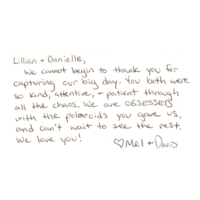 Lillian + Danielle,
We cannot begin to thank you for
capturing our big day. You both were
so kind, attentive, + patient through
all the chaos. We are OBSESSED
with the polaroids you gave us,
and can't wait to see the rest.
We love you!
♡Mel + David